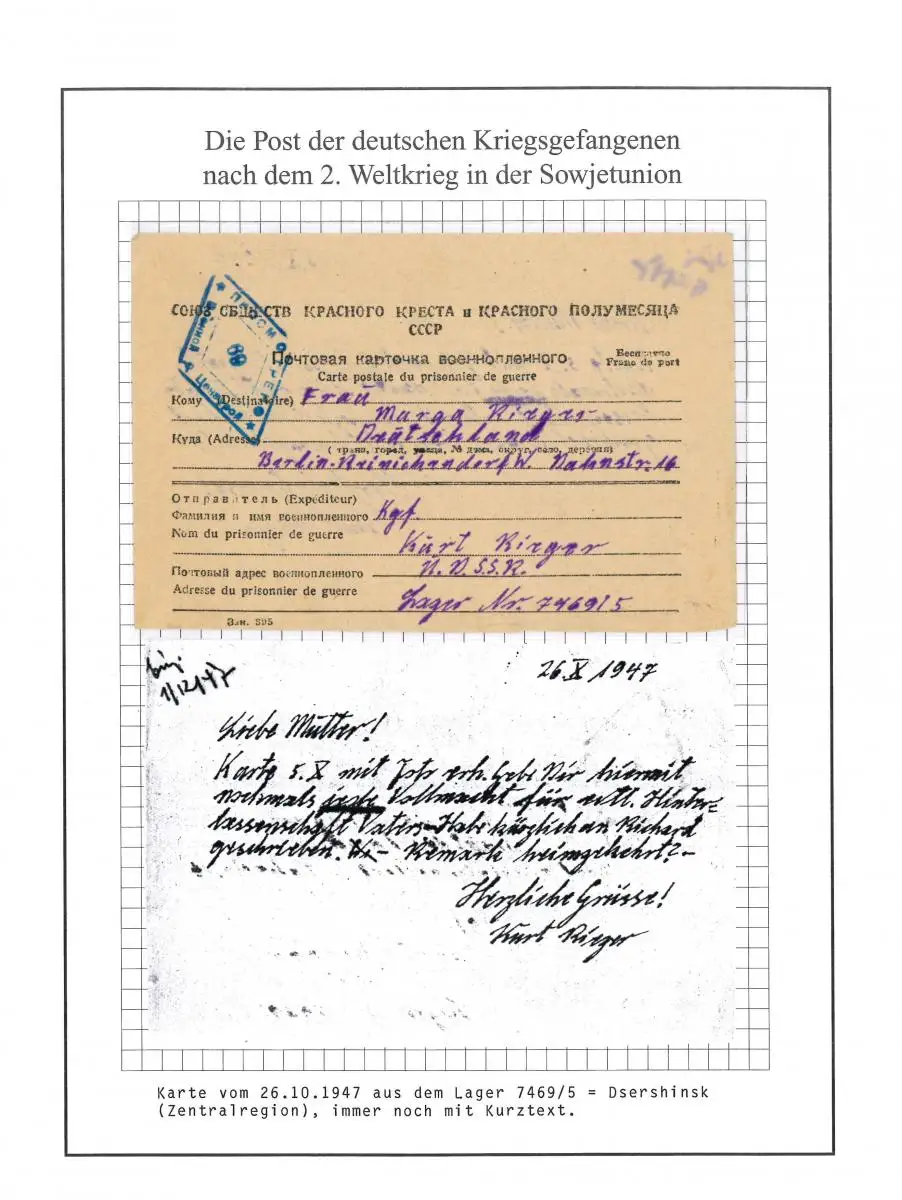 Die Post der deutschen Kriegsgefangenen
nach dem 2. Weltkrieg in der Sowjetunion
СОЮЗ ОБЩЕСТВ КРАСНОГО КРЕСТА и КРАСНОГО ПОЛУМЕСЯЦА
СССР
Почтовая карточка военнопленного
Бесплатно
Franc de port
Carte postale du prisonnier de guerre
69
Кому (Destinataire) Frau
Marga Rieger
Куда (Adresse) Deutschland
(страна, город, улица, № дома, округ, село, деревня)
Berlin-Reinickendorf W. Hahnstr. 16
Отправитель (Expéditeur)
Фамилия и имя военнопленного Kgf.
Nom du prisonnier de guerre
Kurt Rieger
Почтовый адрес военнопленного U.d.S.S.R.
Adresse du prisonnier de guerre
Lager Nr. 7469/5
Зак. 595
1/12/47
26.X 1947
Liebe Mutter!
Karte 5.X mit erh. Gebe Dir hiermit
nochmals jede Vollmacht für evtl. Hinter=
lassenschaft Vaters– Habe kürzlich an Richard
geschrieben. – Remark heimgekehrt? –
Herzliche Grüsse!
Kurt Rieger
Karte vom 26.10.1947 aus dem Lager 7469/5 = Dsershinsk
(Zentralregion), immer noch mit Kurztext.